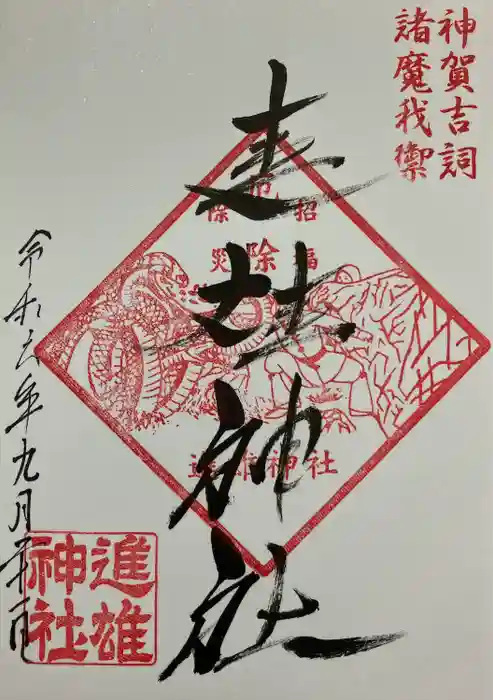 神賀吉詞
諸魔我禦
招福
厄除
除災
進雄神社
進雄神社
令和六年九月
進雄
神社